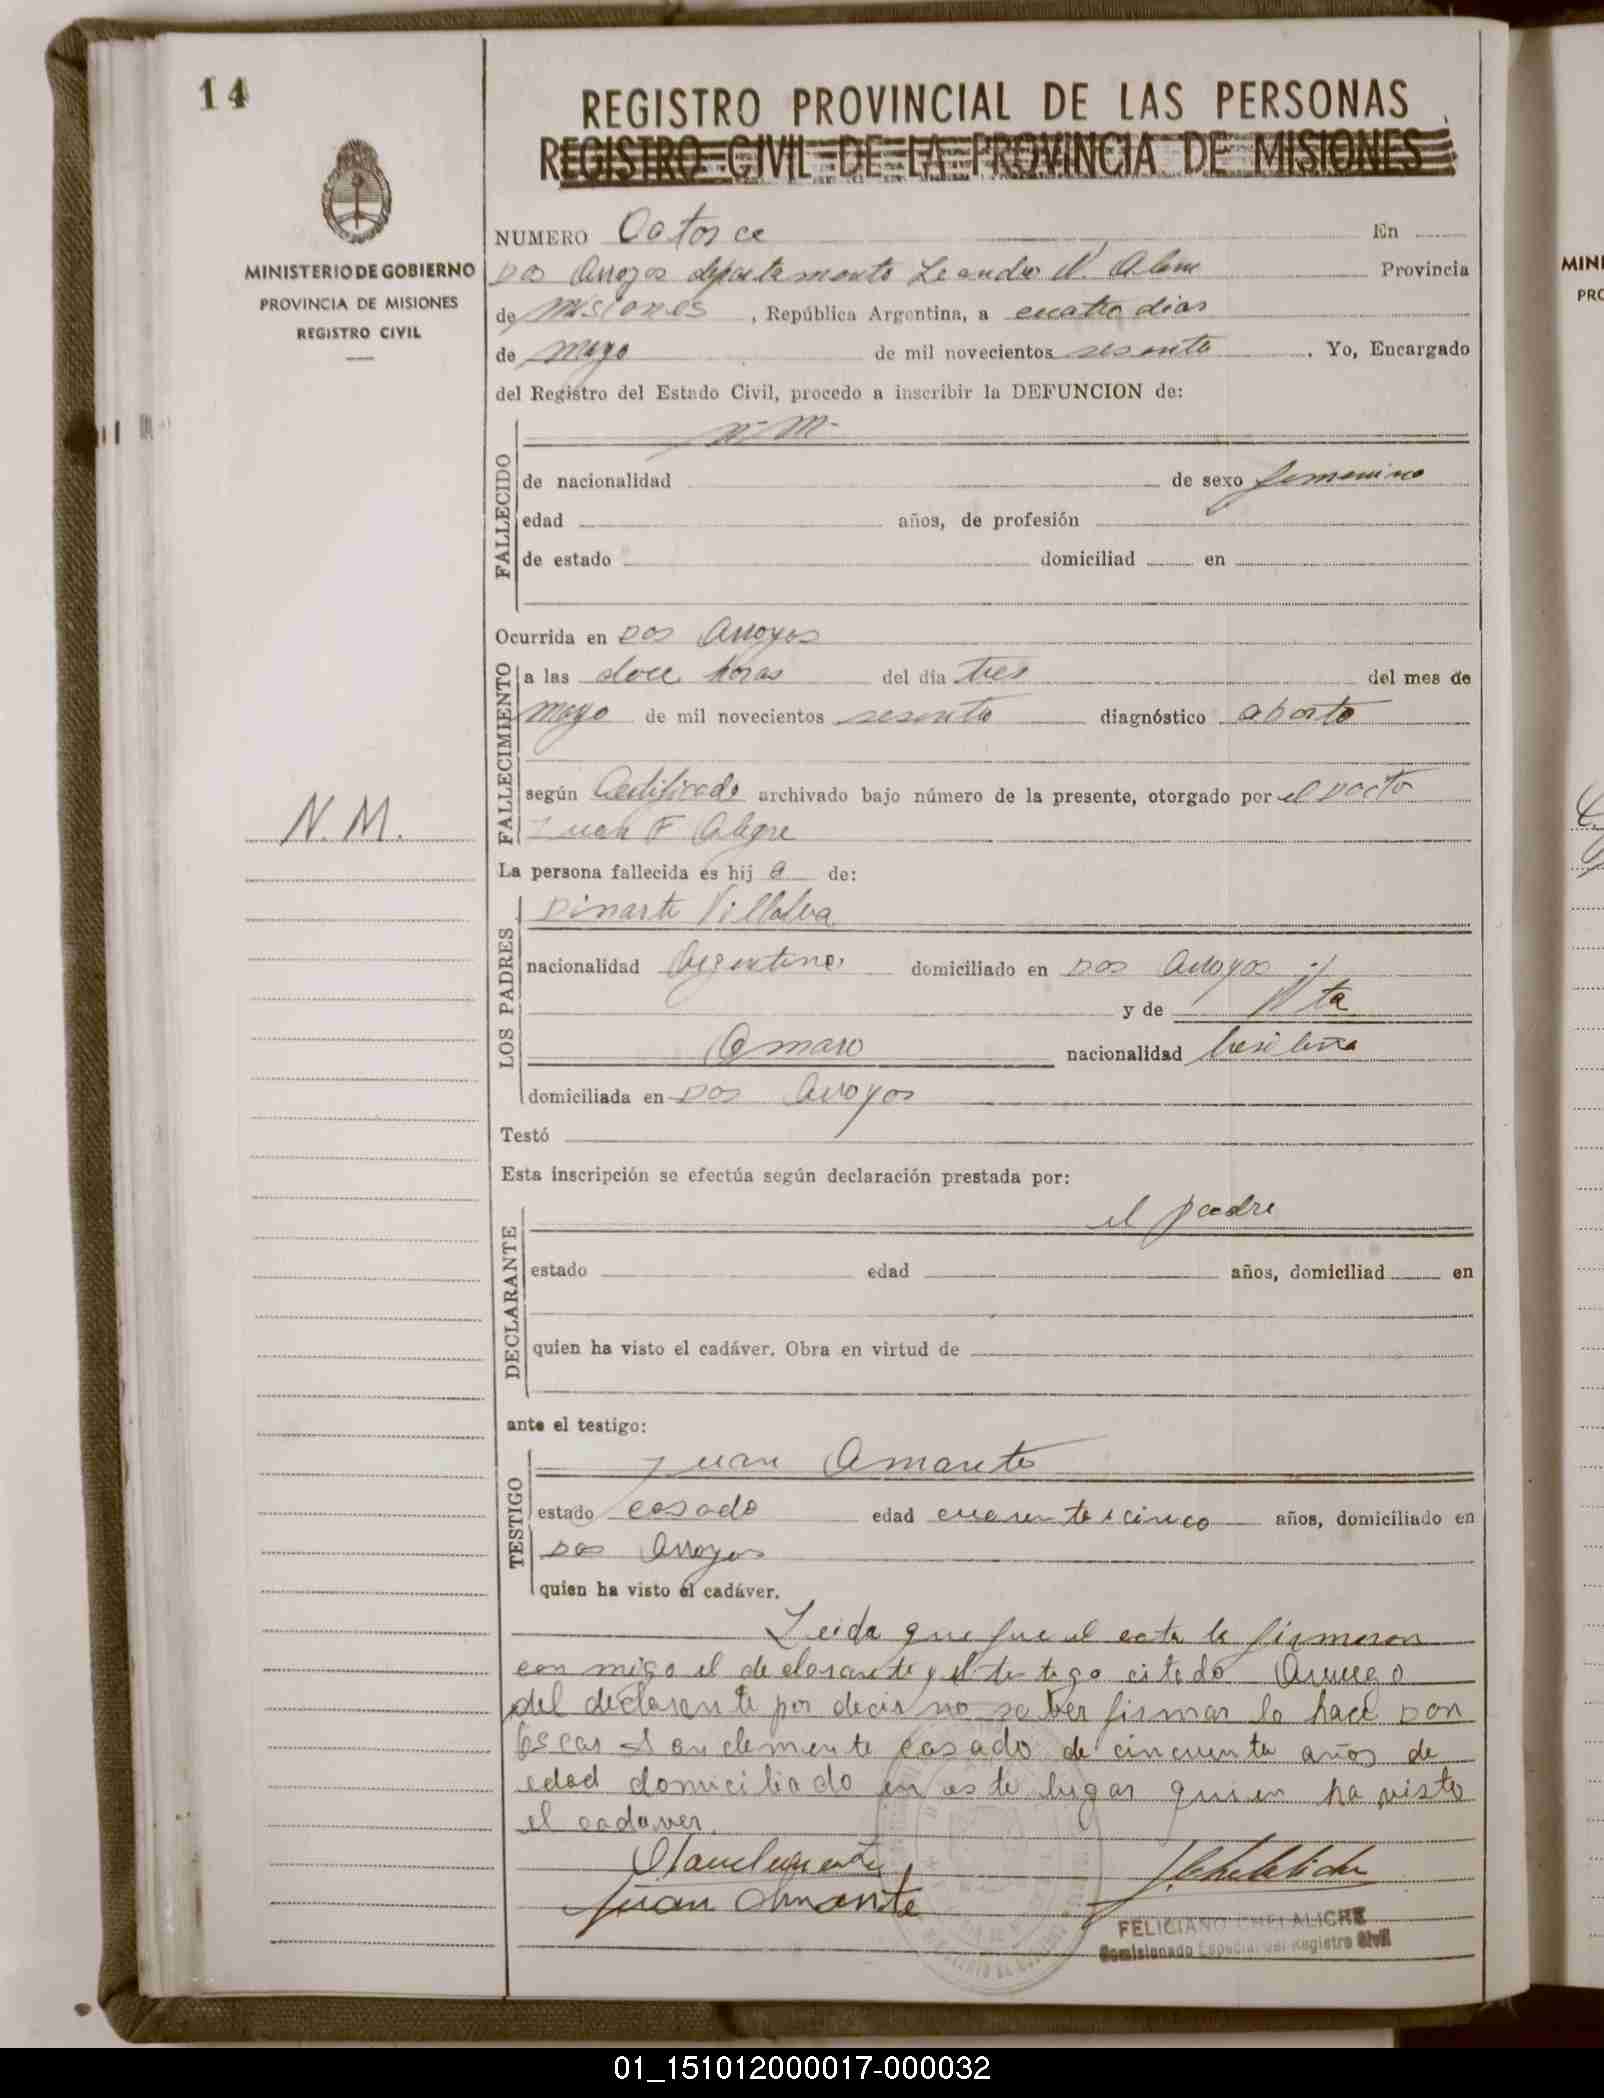 14
REGISTRO PROVINCIAL DE LAS PERSONAS
REGISTRO CIVIL DE LA PROVINCIA DE MISIONES
MINISTERIO DE GOBIERNO
PROVINCIA DE MISIONES
REGISTRO CIVIL
NUMERO Catorce En
Dos Arroyos departamento Leandro N. Alem Provincia
de Misiones, República Argentina, a cuatro dias
de mayo de mil novecientos sesenta. Yo, Encargado
del Registro del Estado Civil, procedo a inscribir la DEFUNCION de:
N. M.
FALLECIDO
de nacionalidad de sexo femenino
edad años, de profesión
de estado domiciliad en
Ocurrida en Dos Arroyos
FALLECIMIENTO
a las doce horas del día tres del mes de
mayo de mil novecientos sesenta diagnóstico aborto
según Certificado archivado bajo número de la presente, otorgado por el Docto
Juan F Alegre
N. M.
La persona fallecida es hij a de:
LOS PADRES
Dinarte Villalva
nacionalidad Argentino domiciliado en Dos Arroyos
y de
Amaro nacionalidad brasileña
domiciliada en Dos Arroyos
Testó
Esta inscripción se efectúa según declaración prestada por:
DECLARANTE
el padre
estado edad años, domiciliad en
quien ha visto el cadáver. Obra en virtud de
ante el testigo:
TESTIGO
Juan Amarante
estado casado edad cuarenta i cinco años, domiciliado en
Dos Arroyos
quien ha visto el cadáver.
Leida que fue el acta la firmaron
con migo el declarante y el testigo citado Arruego
del declarante por decir no saber firmar lo hace Don
Oscar Sanclemente casado de cincuenta años de
edad domiciliado en este lugar quien ha visto
el cadaver.
OSanclemente
Juan Amarante
FELICIANO CHELALICHE
Comisionado Especial del Registro Civil
01_151012000017-000032